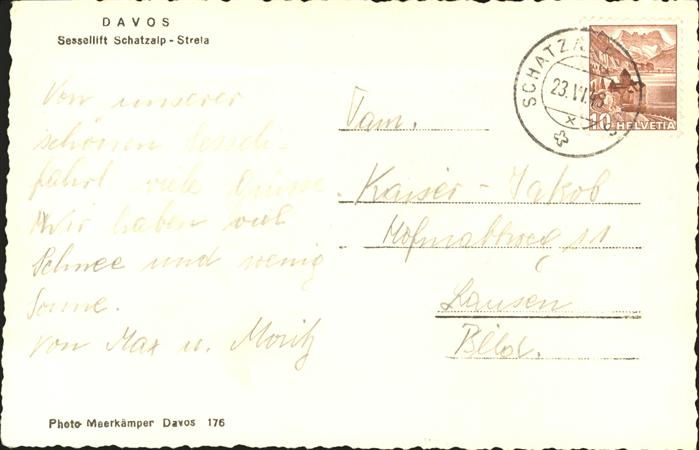 DAVOS
Sessellift Schatzalp - Strela
Von unserer
schönen Sessel-
fahrt viele Grüsse.
Wir haben viel
Schnee und wenig
Sonne.
von Max u. Moritz
Fam.
Kaiser - Jakob
Hofmattweg 11
Lausen
Bild.
SCHATZALP
23.VI.48
10 HELVETIA
Photo Meerkämper Davos 176